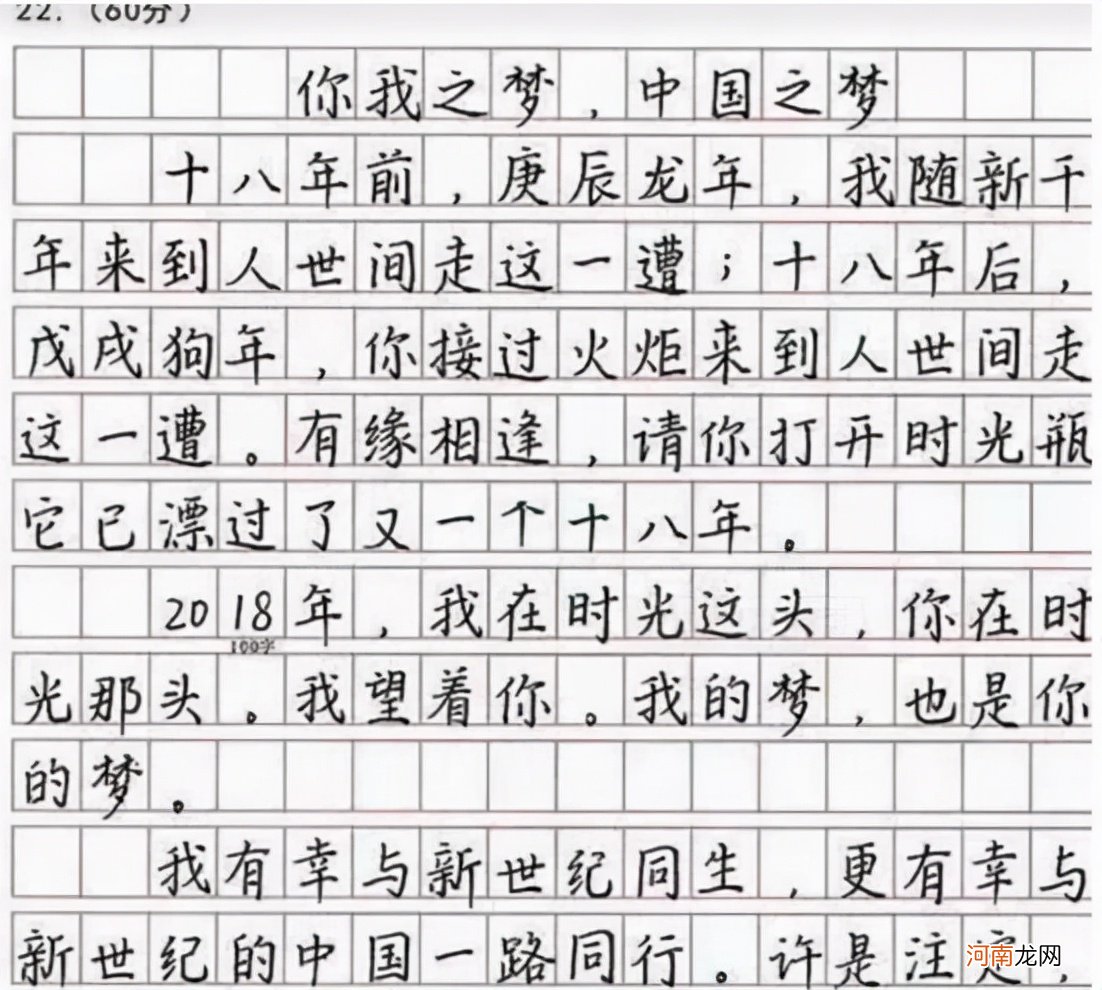 22.（60分）
你我之梦，中国之梦
十八年前，庚辰龙年，我随新千
年来到人世间走这一遭；十八年后，
戊戌狗年，你接过火炬来到人世间走
这一遭。有缘相逢，请你打开时光瓶
它已漂过了又一个十八年。
2018年，我在时光这头，你在时
100字
光那头。我望着你。我的梦，也是你
的梦。
我有幸与新世纪同生，更有幸与
新世纪的中国一路同行。许是注定，
河南龙网